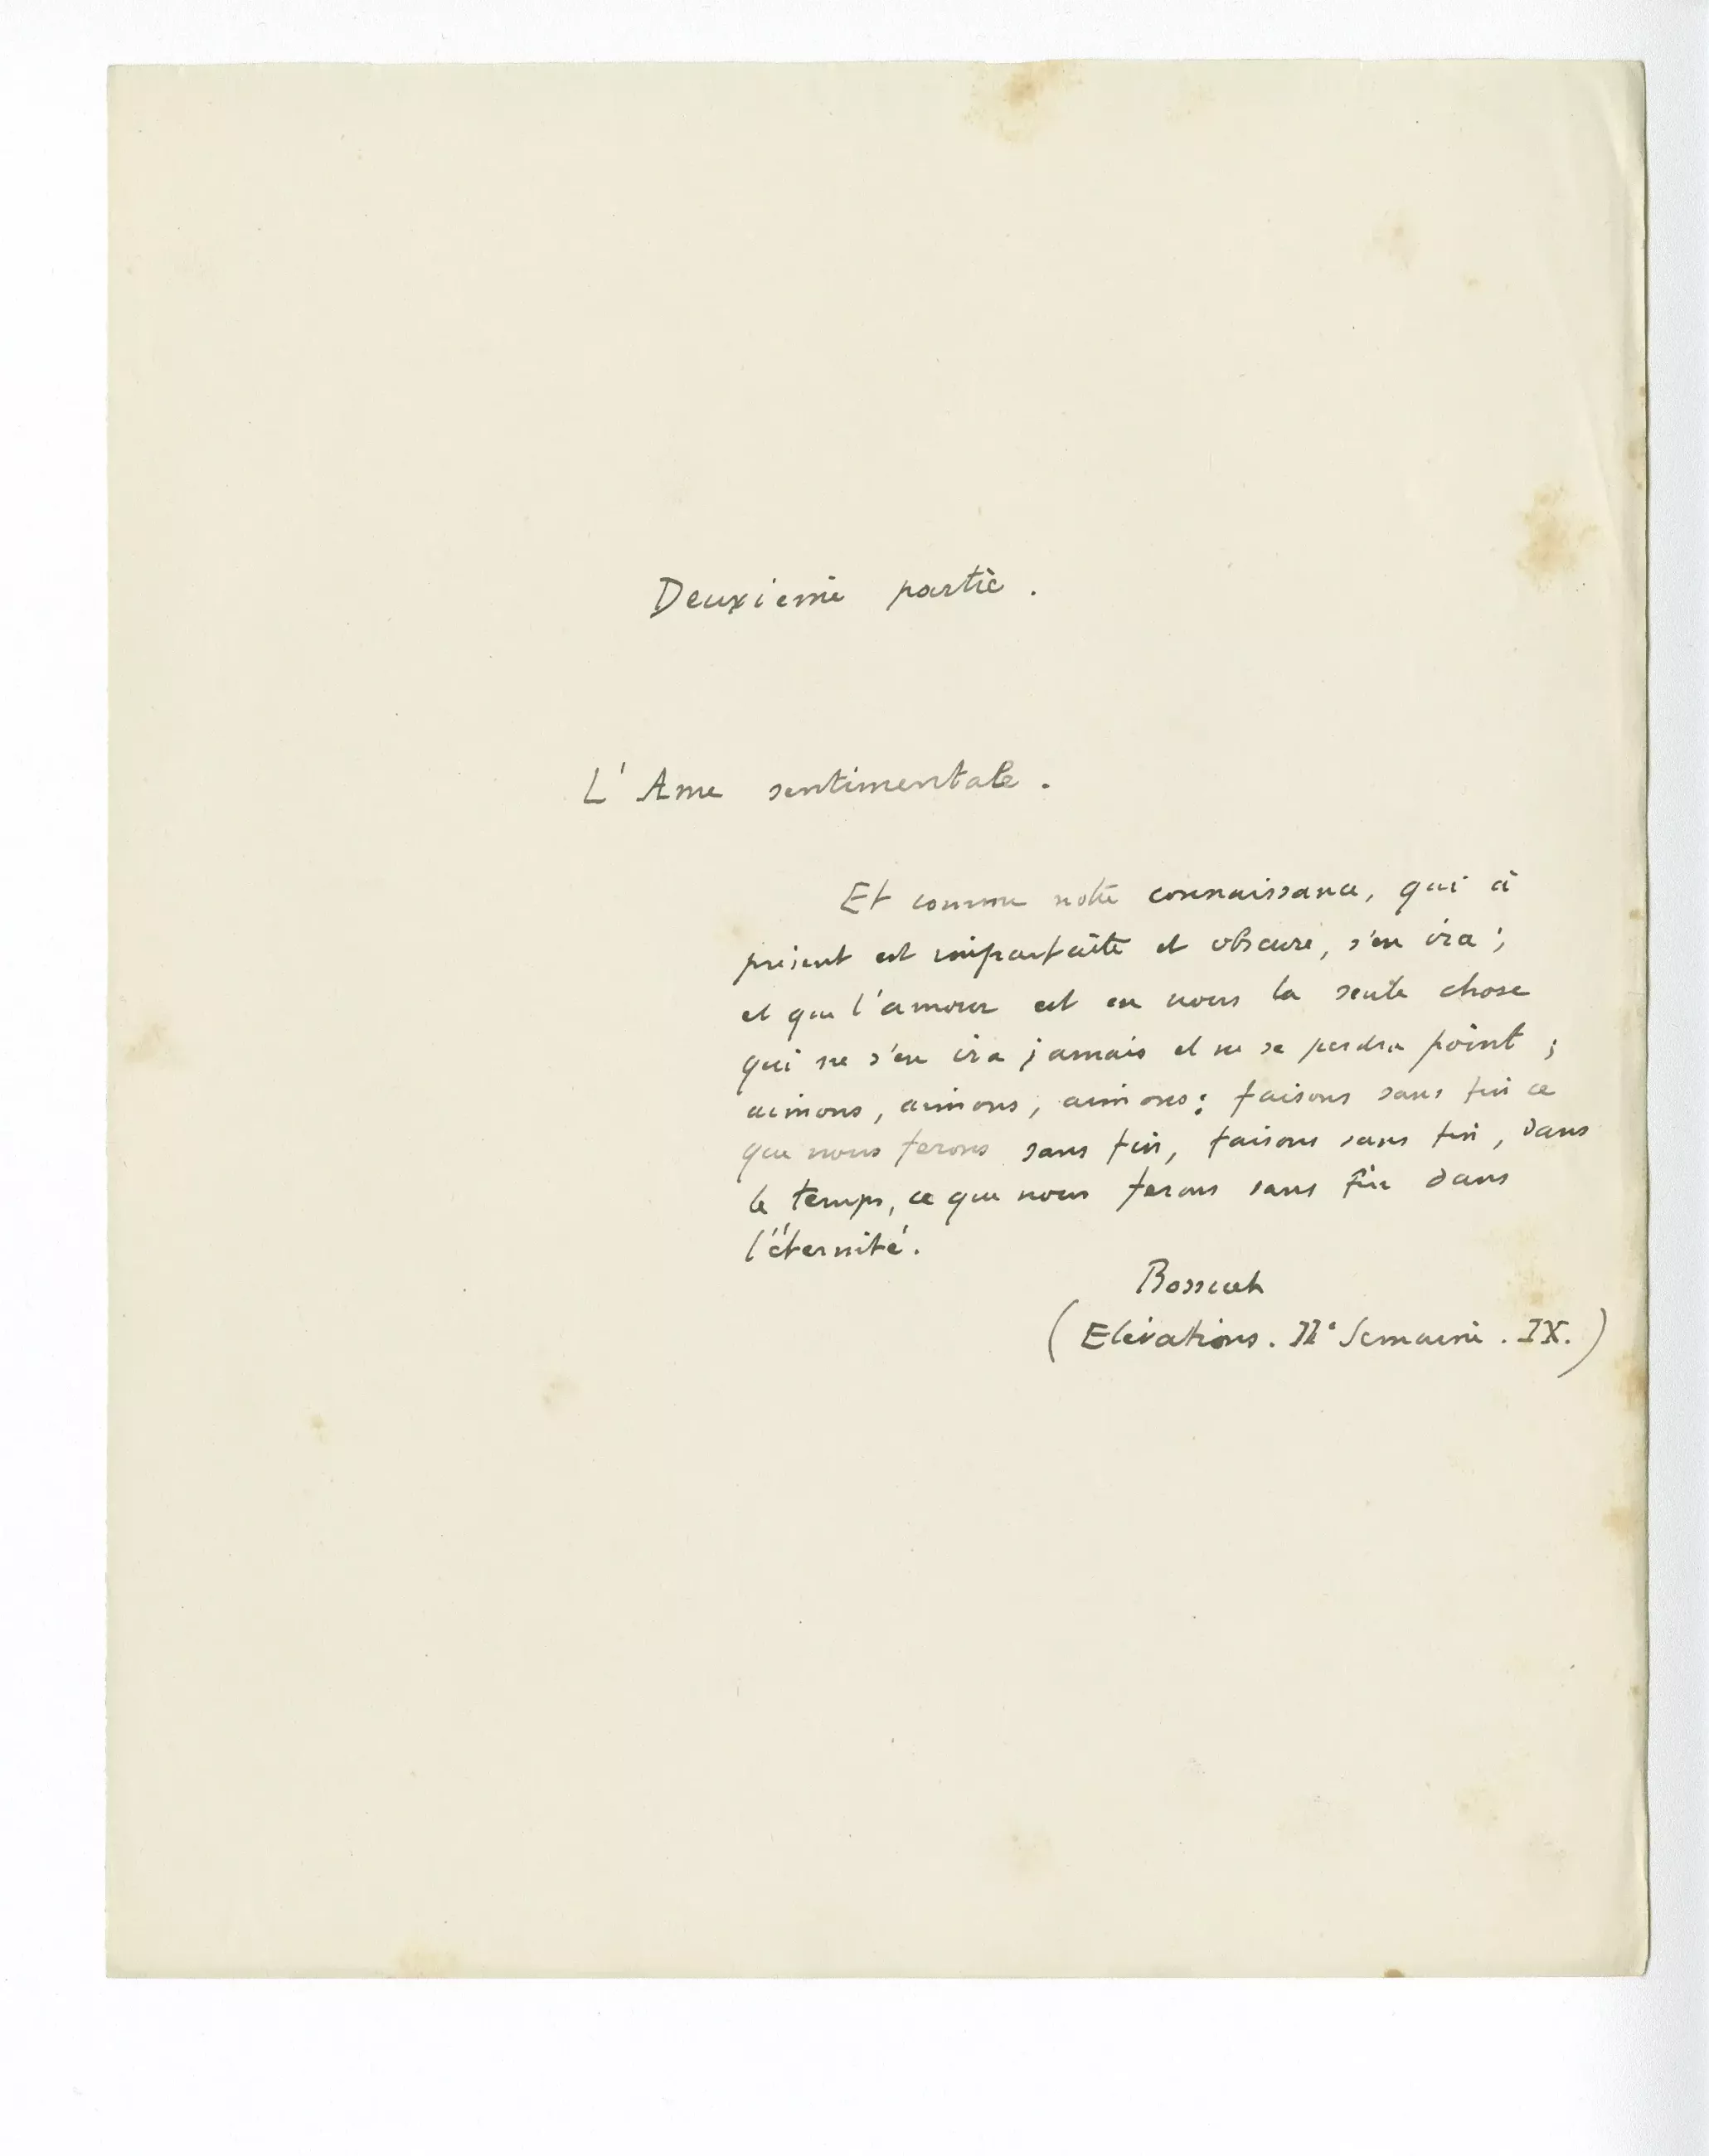 Deuxième partie.
L'Ame sentimentale.
Et comme notre connaissance, qui à
présent est imparfaite et obscure, s'en ira ;
et que l'amour est en nous la seule chose
qui ne s'en ira jamais et ne se perdra point ;
aimons, aimons, aimons : faisons sans fin ce
que nous ferons sans fin, faisons sans fin, dans
le temps, ce que nous ferons sans fin dans
l'éternité.
Bossuet
(Elévations. IIe Semaine. IX.)